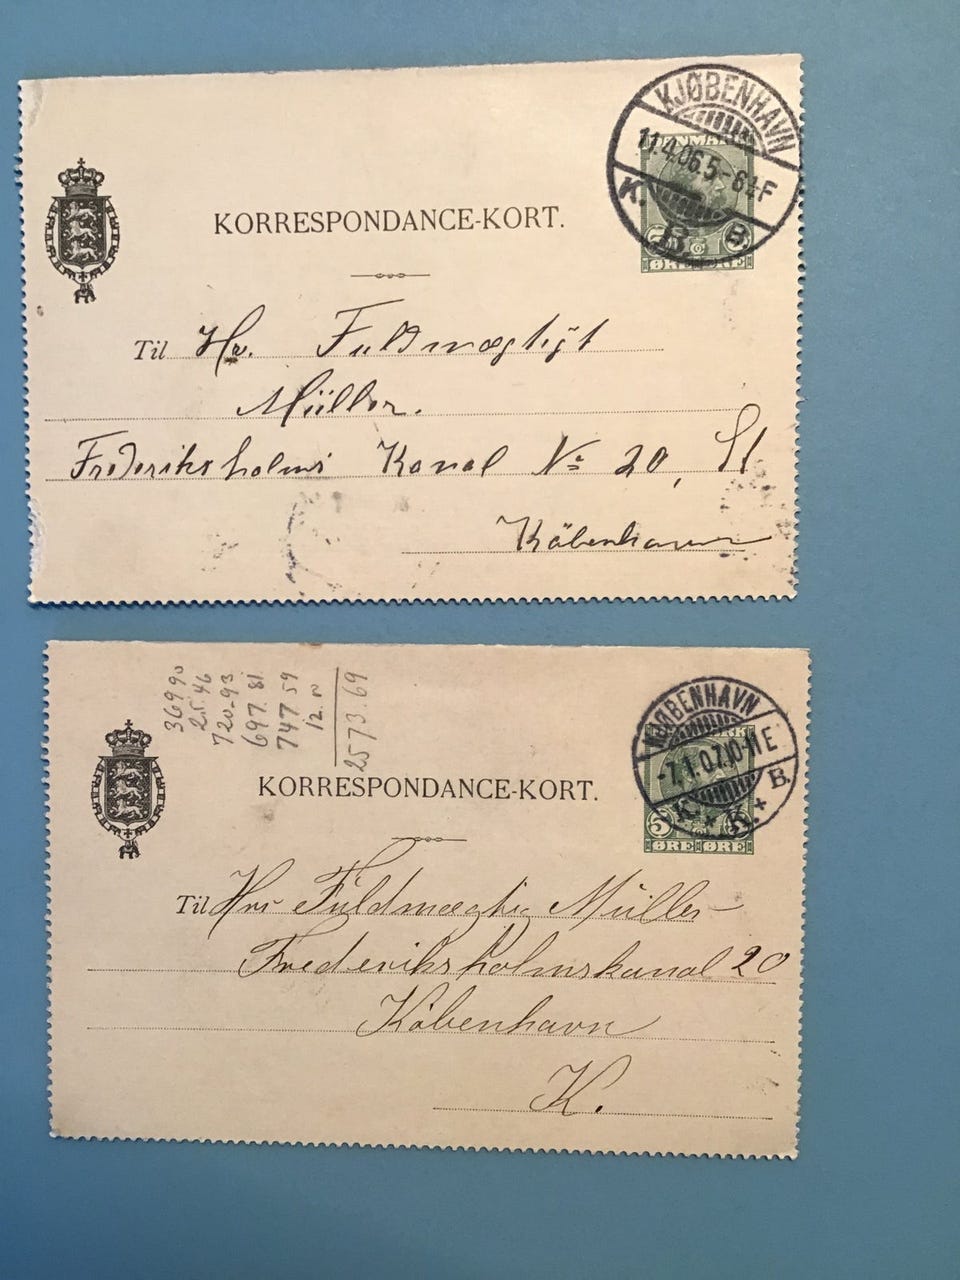 KJØBENHAVN
11.4.06.5-6½F
K. B.
B.
DANMARK
5 5
ØRE ØRE
KORRESPONDANCE-KORT.
Til Hr. Fuldmægtigt
Müller.
Frederiksholms Kanal No 20, St
Köbenhavn
36990
25.46
720-93
697.81
747.59
12.
2573.69
KJØBENHAVN
-7.1.07.10-11E
K. K. B.
5 5
ØRE ØRE
KORRESPONDANCE-KORT.
Til Hrr Fuldmægtig Müller
Frederiksholmskanal 20
Köbenhavn
K.